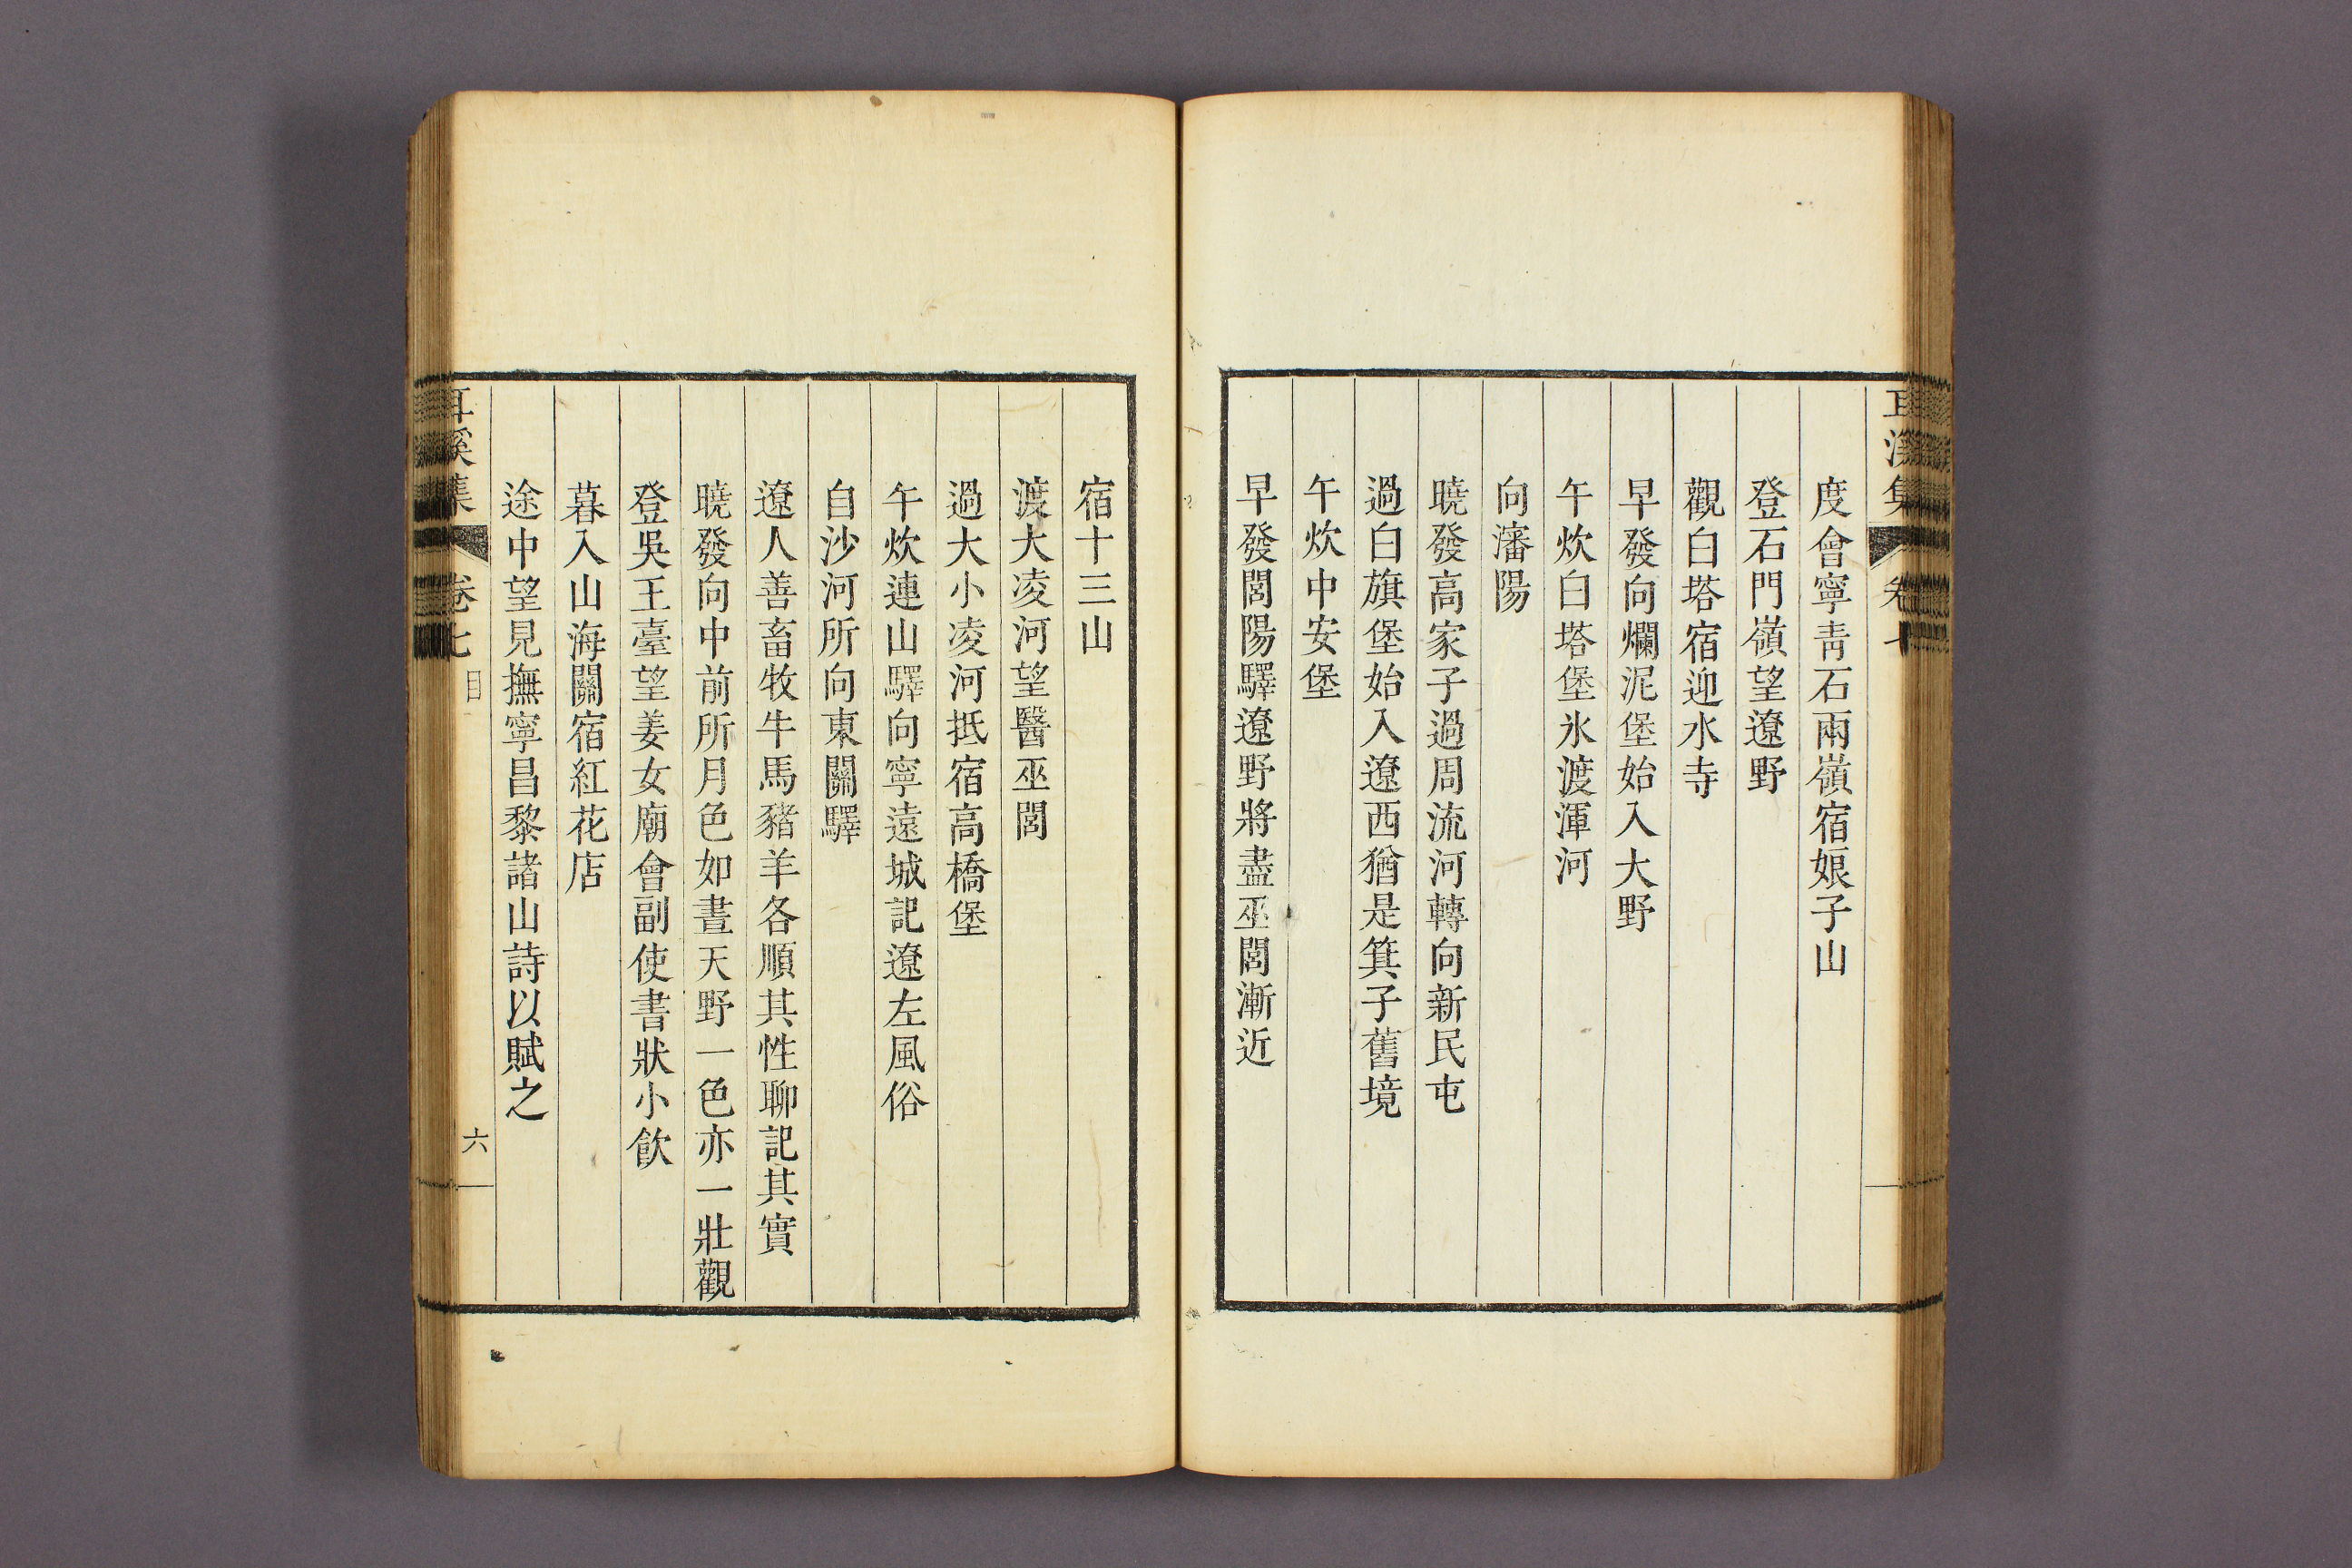 度會寧靑石兩嶺宿娘子山
登石門嶺望遼野
觀白塔宿迎水寺
早發向爛泥堡始入大野
午炊白塔堡氷渡渾河
向瀋陽
曉發高家子過周流河轉向新民屯
過白旗堡始入遼西猶是箕子舊境
午炊中安堡
早發閭陽驛遼野將盡巫閭漸近
宿十三山
渡大凌河望醫巫閭
過大小凌河抵宿高橋堡
午炊連山驛向寧遠城記遼左風俗
自沙河所向東關驛
遼人善畜牧牛馬豬羊各順其性聊記其實
曉發向中前所月色如晝天野一色亦一壯觀
登吳王臺望姜女廟會副使書狀小飮
暮入山海關宿紅花店
途中望見撫寧昌黎諸山詩以賦之
耳溪集 卷七 目 六